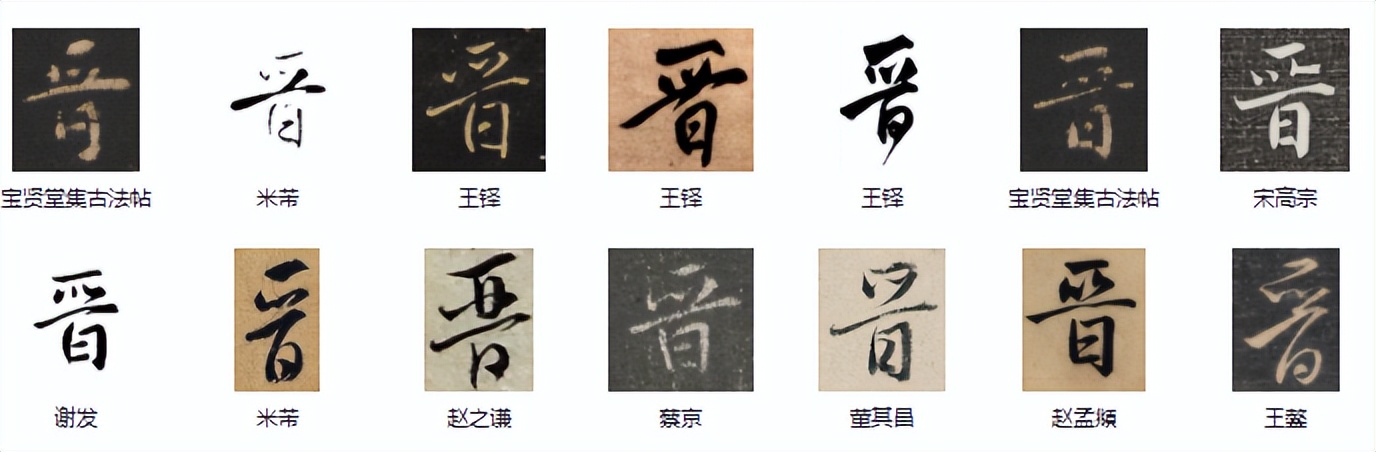 晋 晋 晋 晋 晋 晋 晋
宝贤堂集古法帖 米芾 王铎 王铎 王铎 宝贤堂集古法帖 宋高宗
晋 晋 晋 晋 晋 晋 晋
谢发 米芾 赵之谦 蔡京 董其昌 赵孟頫 王蠚